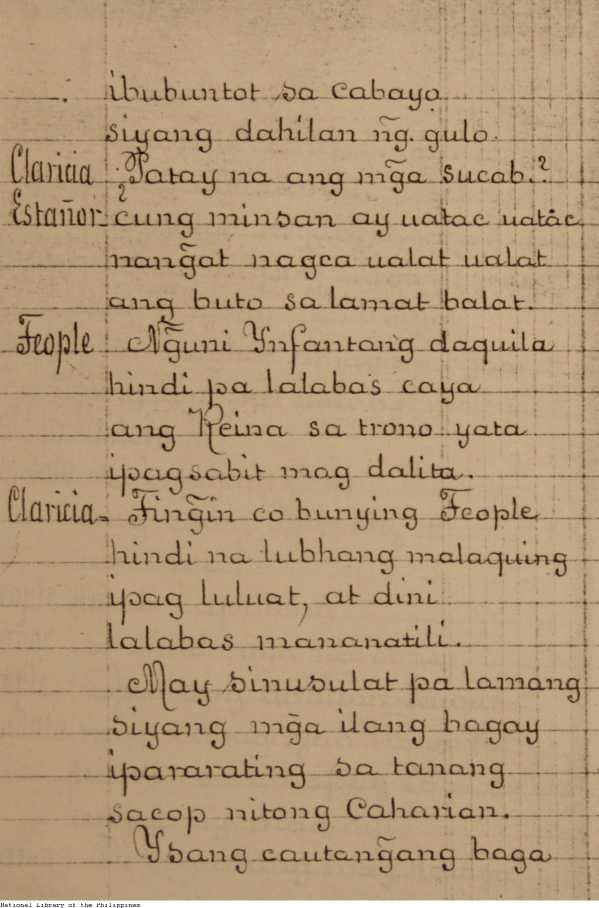 ibubuntot sa cabayo
siyang dahilan ñg. gulo.
Claricia ¿Patay na ang mg̃a sucab.?
Estañor- cung minsan ay uatac uatac
nang̃at nagca ualat ualat
ang buto sa lamat balat.
Feople Ng̃uni Ynfantang daquila
hindi pa lalabas caya
ang Reina sa trono yata
ipagsabit mag dalita.
Claricia= Fing̃in co bunying Feople
hindi na lubhang malaquing
ipag luluat, at dini
lalabas mananatili.
May sinusulat pa lamang
siyang mg̃a ilang bagay
ipararating sa tanang
sacop nitong Caharian.
Ysang cautang̃ang baga
National Library of the Philippines